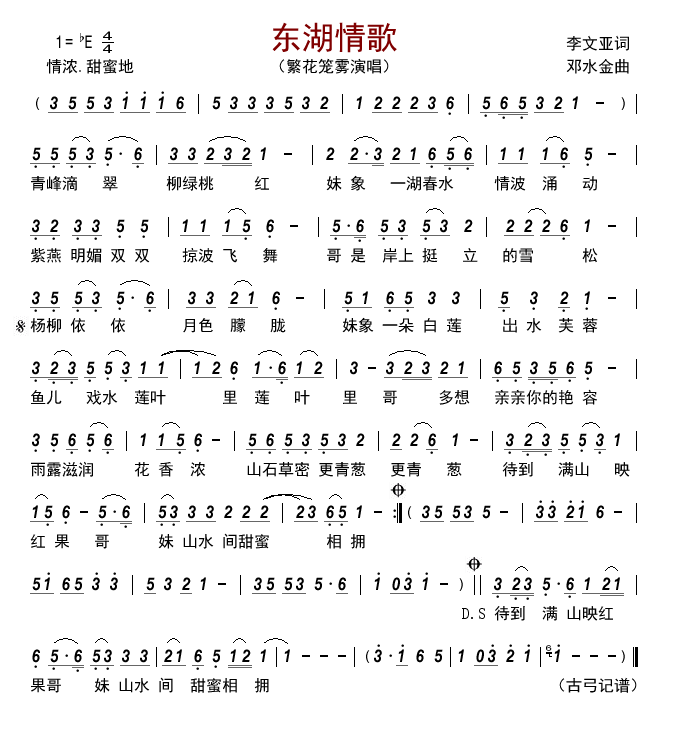 东湖情歌
1=♭E 4/4
李文亚词
情浓.甜蜜地
（繁花笼雾演唱）
邓水金曲
( 3 5 5 3 1 1 1 6 | 5 3 3 3 5 3 2 | 1 2 2 2 3 6 | 5 6 5 3 2 1 - ) |
5 5 5 3 5· 6 | 3 3 2 3 2 1 - | 2 2·3 2 1 6 5 6 | 5 1 1 6 5 - |
青峰滴 翠 柳绿桃 红 妹 象 一湖春水 情波 涌 动
3 2 3 3 5 5 | 1 1 1 5 6 - | 5·6 5 3 5 3 2 | 2 2 2 6 1 - |
紫燕 明媚 双 双 掠波 飞 舞 哥 是 岸上 挺 立 的雪 松
3 5 5 3 5·6 | 3 3 2 1 6 - | 5 1 6 5 3 3 | 5 3 2 1 - |
𝄋杨柳 依 依 月色 朦 胧 妹象 一朵 白 莲 出 水 芙 蓉
3 2 3 5 5 3 1 1 | 1 2 6 1·6 1 2 | 3 - 3 2 3 2 1 | 6 5 3 5 6 5 - |
鱼儿 戏水 莲叶 里 莲 叶 里 哥 多想 亲亲你的艳 容
3 5 6 5 6 | 1 1 5 6 - | 5 6 5 3 5 3 2 | 2 2 6 1 - | 3 2 3 5 5 3 1 |
雨露滋润 花 香 浓 山石草密 更青葱 更青 葱 待到 满山 映
1 5 6 - 5·6 | 5 3 3 3 2 2 2 | 2 3 6 5 1 - :‖ ( 3 5 5 3 5 - | 3 3 2 1 6 - |
红 果 哥 妹 山水 间甜蜜 相 拥
5 1 6 5 3 3 | 5 3 2 1 - | 3 5 5 3 5·6 | 1 0 3 1 - ) ‖ 3 2 3 5·6 1 2 1 |
D.S 待到 满 山映红
6 5·6 5 3 3 3 | 2 1 6 5 1 2 1 | 1 - - - | ( 3·1 6 5 | 1 0 3 2 1 | 1 - - - ) ‖
果哥 妹 山水 间 甜蜜相 拥
（古弓记谱）